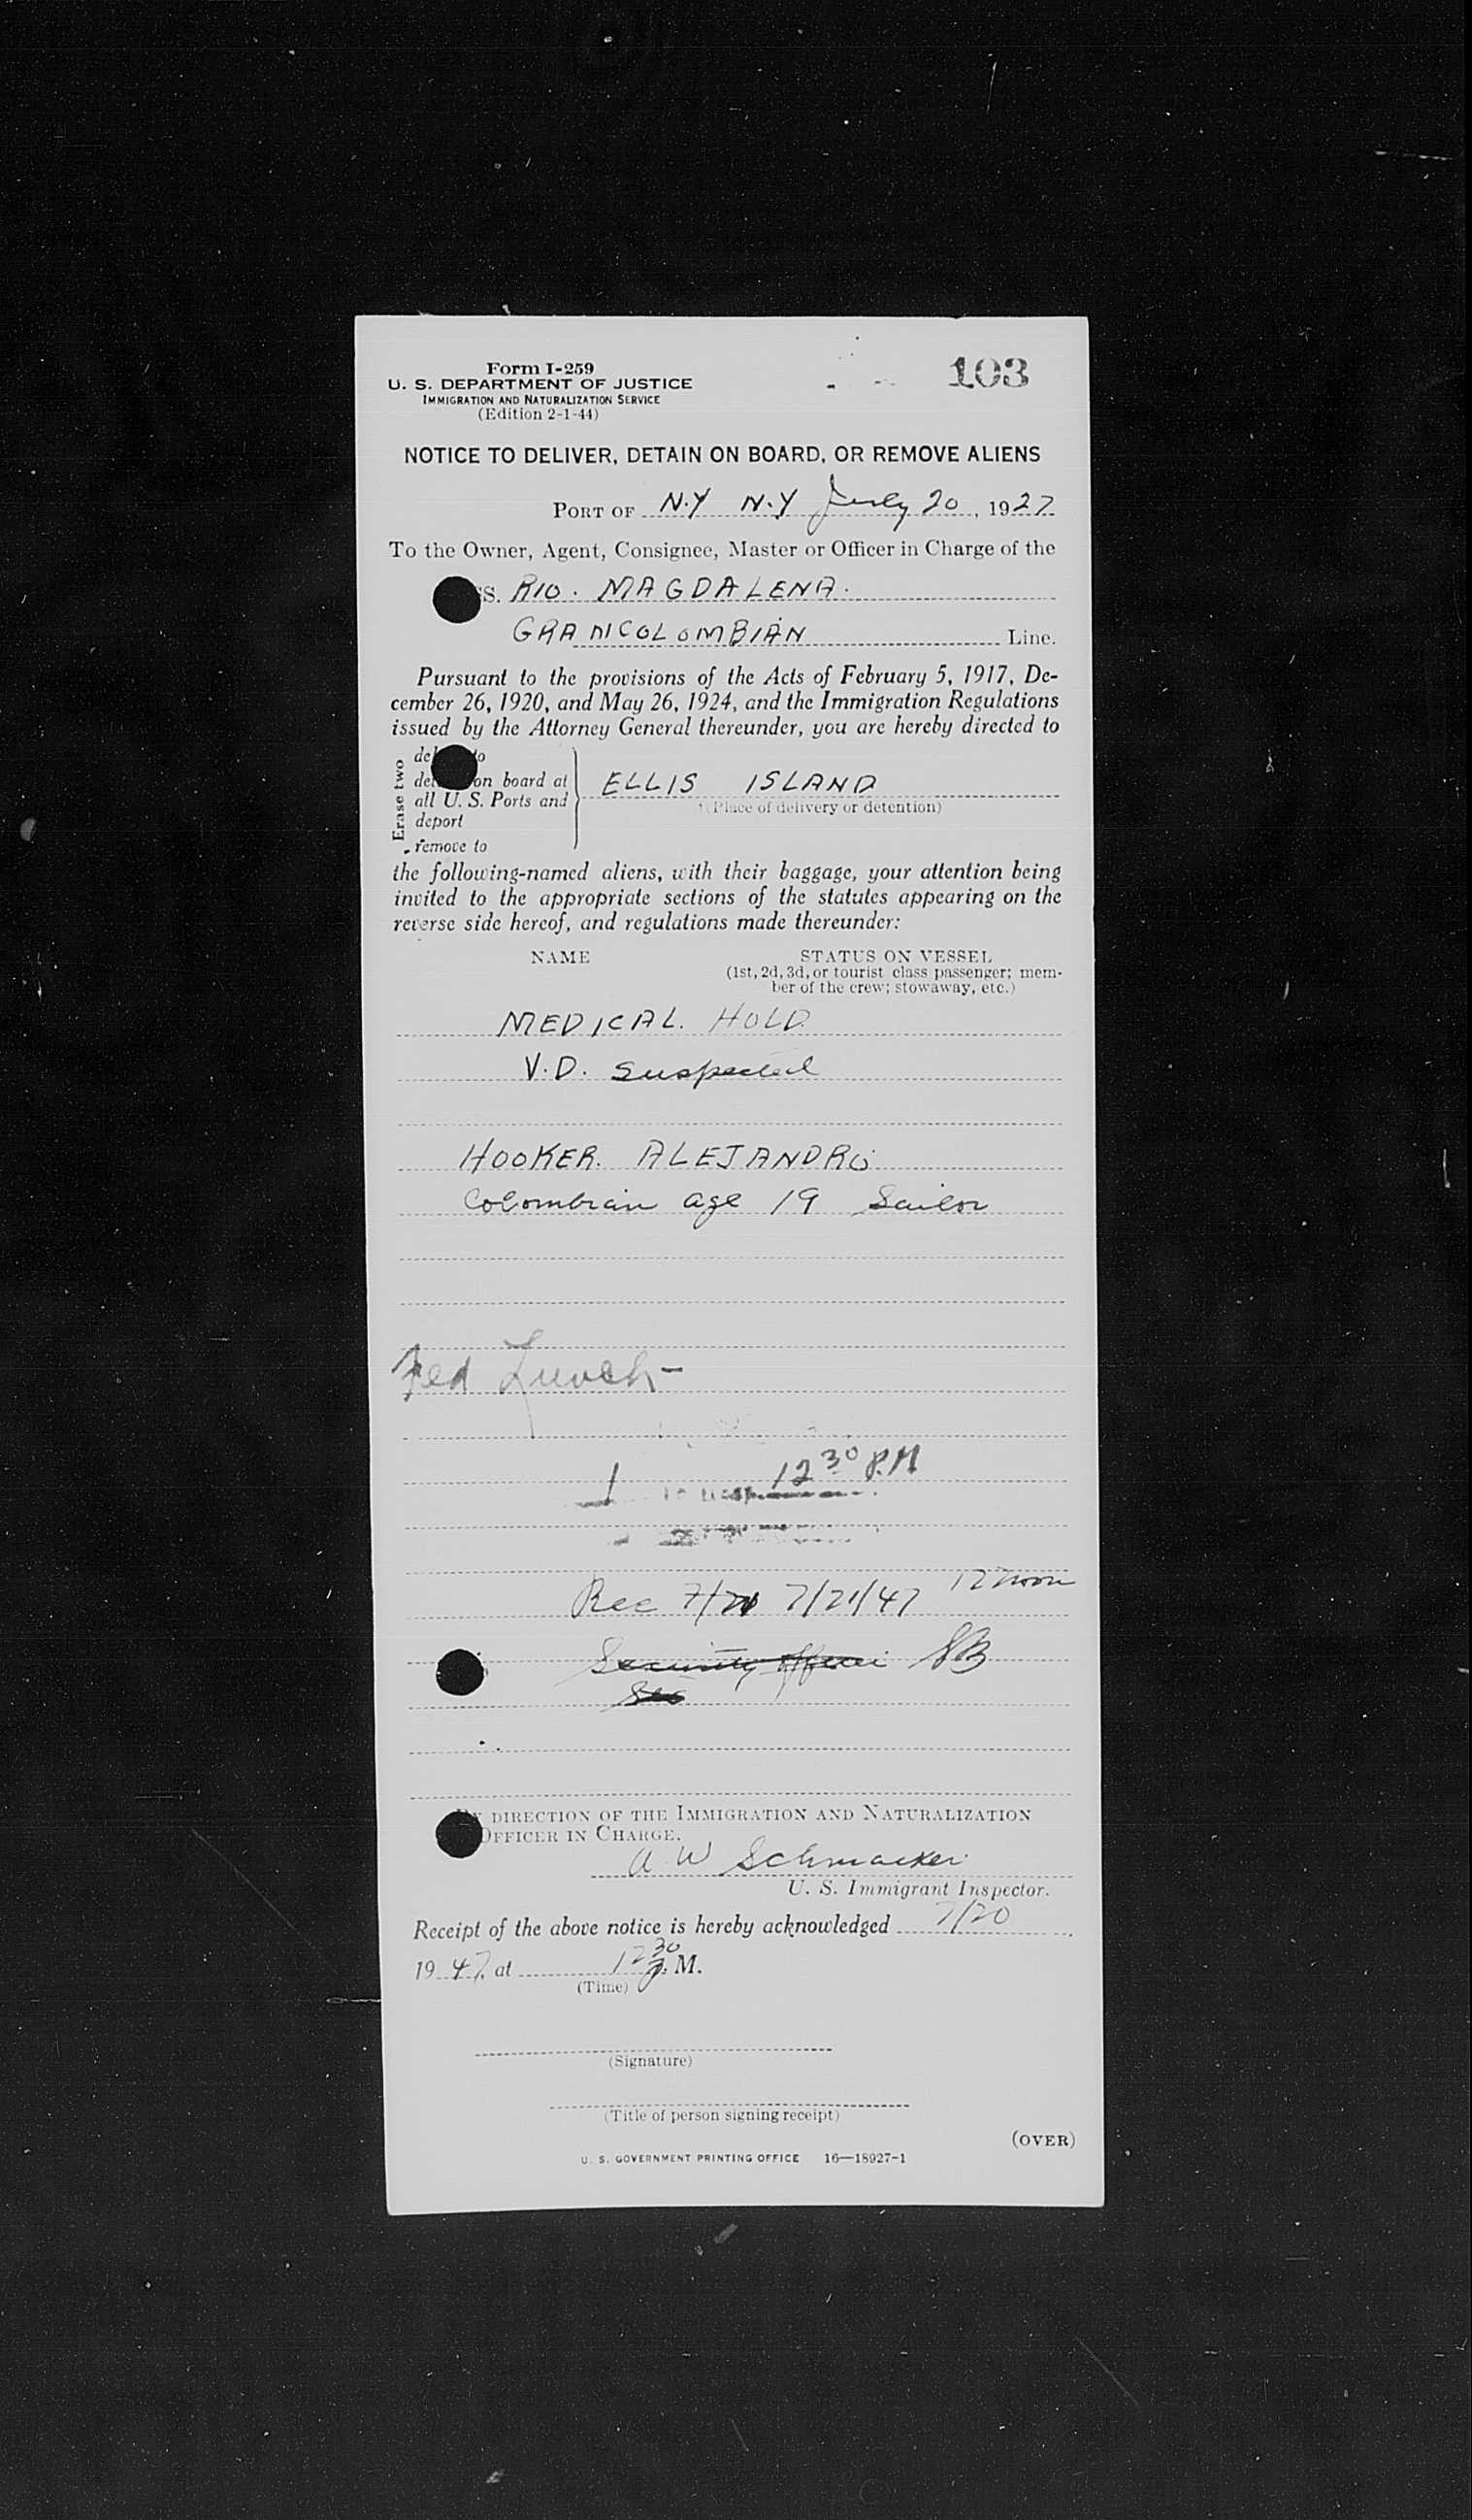 Form I-259
103
U. S. DEPARTMENT OF JUSTICE
IMMIGRATION AND NATURALIZATION SERVICE
(Edition 2-1-44)
NOTICE TO DELIVER, DETAIN ON BOARD, OR REMOVE ALIENS
PORT OF N.Y N.Y July 20, 1927
To the Owner, Agent, Consignee, Master or Officer in Charge of the
SS. RIO. MAGDALENA.
GRANCOLOMBIAN Line.
Pursuant to the provisions of the Acts of February 5, 1917, De-
cember 26, 1920, and May 26, 1924, and the Immigration Regulations
issued by the Attorney General thereunder, you are hereby directed to
Erase two
to
on board at
all U. S. Ports and
deport
remove to
ELLIS ISLAND
(Place of delivery or detention)
the following-named aliens, with their baggage, your attention being
invited to the appropriate sections of the statutes appearing on the
reverse side hereof, and regulations made thereunder:
NAME STATUS ON VESSEL
(1st, 2d, 3d, or tourist class passenger; mem-
ber of the crew; stowaway, etc.)
MEDICAL. HOLD
V.D. suspected
HOOKER. ALEJANDRO
Colombian age 19 Sailor
Fed Lunch-
1 12 30 P.M
Rec 7/20 7/21/47 12 noon
Security officer SB
Sec
BY DIRECTION OF THE IMMIGRATION AND NATURALIZATION
OFFICER IN CHARGE.
A W Schmacker
U. S. Immigrant Inspector.
Receipt of the above notice is hereby acknowledged 7/20
1947, at 12 30 P. M.
(Time)
(Signature)
(Title of person signing receipt)
(OVER)
U. S. GOVERNMENT PRINTING OFFICE 16—18927-1